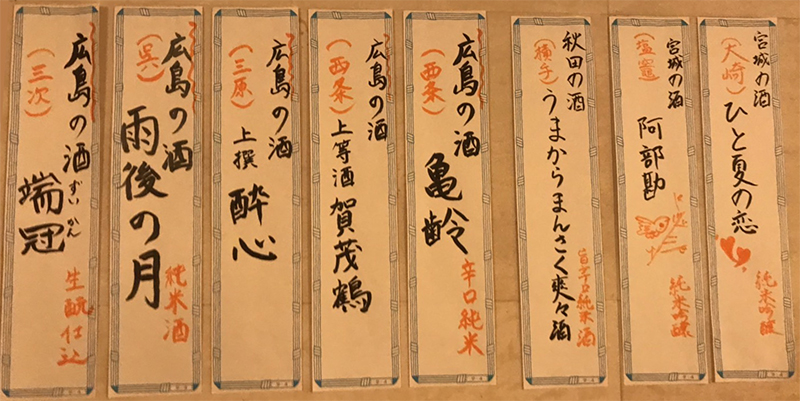 宮城の酒
(大崎)
ひと夏の恋
純米吟醸
宮城の酒
(塩竈)
阿部勘
純米吟醸
秋田の酒
(横手)
うまからまんさく爽々酒
旨辛口純米酒
広島の酒
(西条)
亀齢
辛口純米
広島の酒
(西条)
上等酒 賀茂鶴
広島の酒
(三原)
上撰 酔心
広島の酒
(呉)
雨後の月
純米酒
広島の酒
(三次)
端冠
ずいかん
生酛仕込